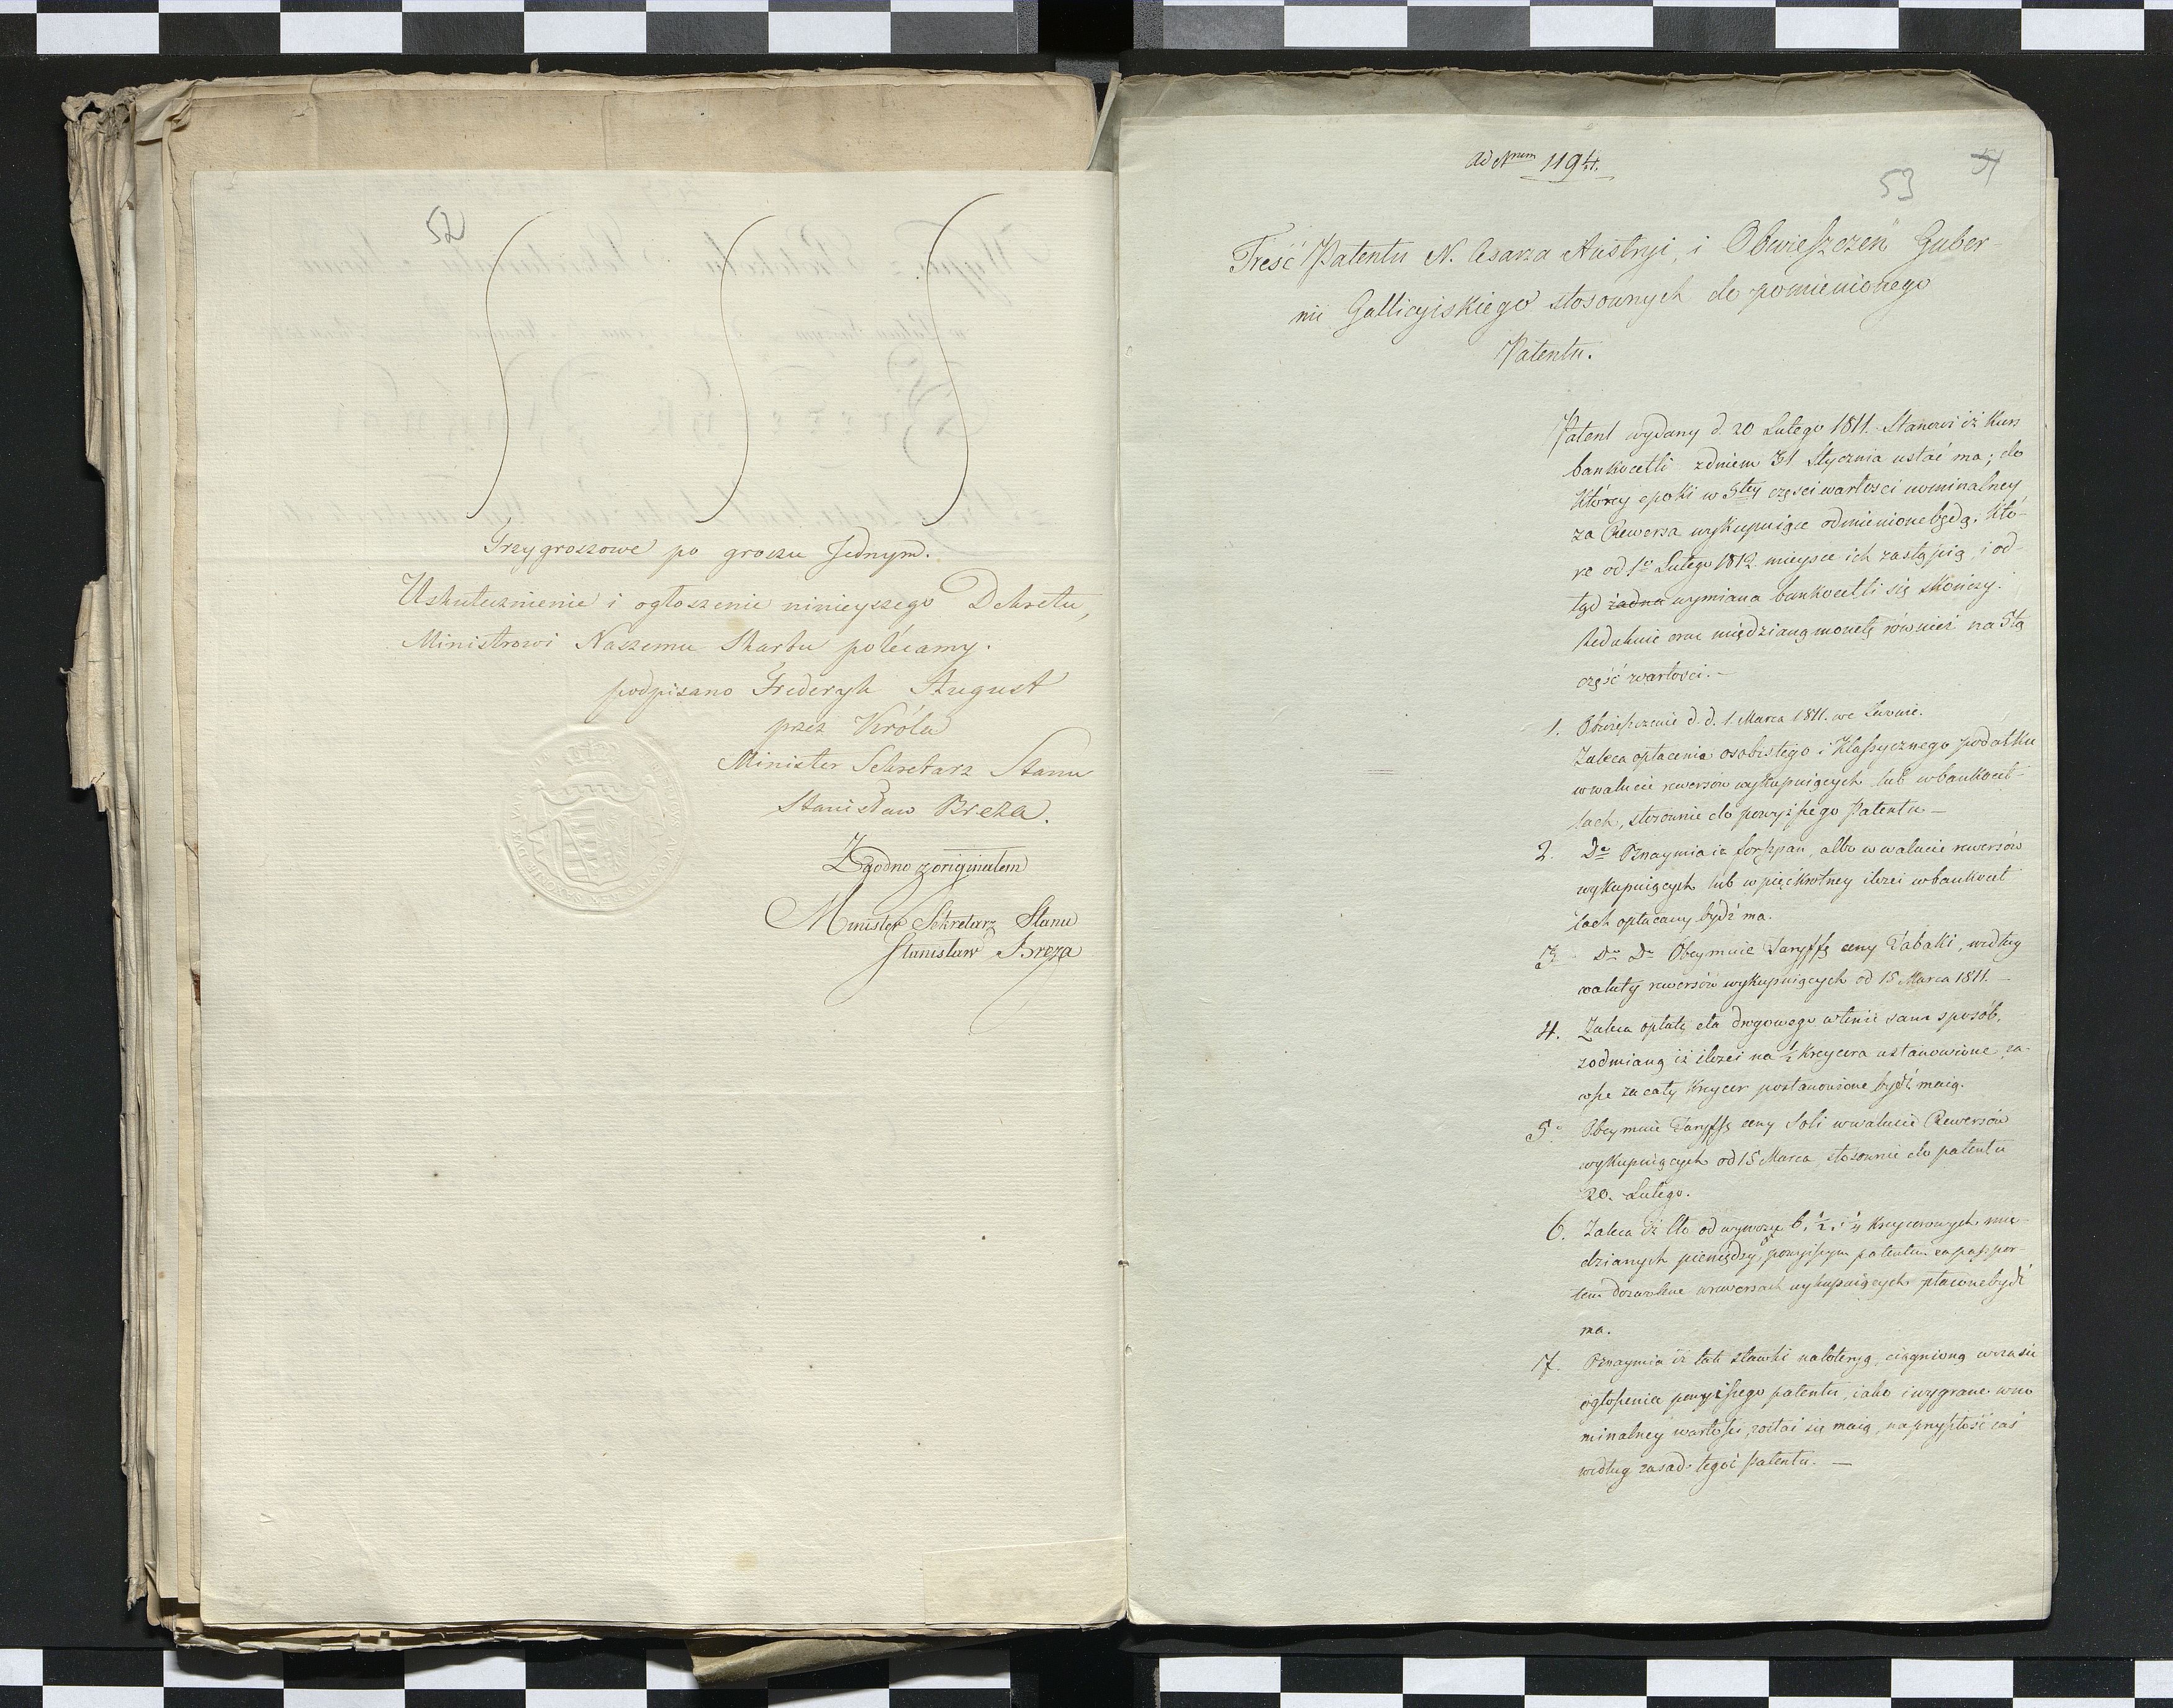 52
Trzygroszowe po groszu Jednym.
Uskutecznienie i ogłoszenie ninieyszego Dekretu,
Ministrowi Naszemu Skarbu polécamy.
podpisano Frederyk August
przez Króla
Minister Sekretarz Stanu
Stanisław Breza.
Zgodno z originałem
Minister Sekretarz Stanu
Stanisław Breza
ad Nrum 1194.
53
51
Treść Patentu N. Cesarza Austryi, i Obwieszczeń Guber-
nii Gallicyiskiego stosownych do pomienionego
Patentu.
Patent wydany d. 20 Lutego 1811. Stanowi iż kurs
bankocetli z dniem 31 Stycznia ustać ma; do
którey epoki w 5tey części wartości nominalney
za Rewersa wykupuiące odmienione będą, któ-
re od 1o Lutego 1812 mieysce ich zastąpią, i od-
tąd żadna wymiana bankocetli się skończy.
Redukuie oraz miedzianą monetę również na 5tą
część wartości.-
1. Obwieszczenie d. d. 1. Marca 1811. we Lwowie.
Zaleca opłacenia osobistego i klassycznego podatku
w walucie rewersów wykupuiących lub w bankocet-
lach, stosownie do powyższego Patentu -
2. Do Oznaymia iż forszpan, albo w walucie rewersów
wykupuiących lub w pięćkrotney ilości w bankocet
lach opłacany bydź ma.
3. Do Do Obeymuie Taryffę ceny Tabaki, według
waluty rewersów wykupuiących od 15 Marca 1811. -
4. Zaleca opłatę cła drogowego w tenże sam sposób,
z odmianą iż ilości na ½ Kreycera ustanowione, za-
wsze za cały Kreycer postanowione bydź maią.
5. Obeymuie Taryffę ceny Soli w walucie Rewersów
wykupuiących od 15 Marca, stosownie do patentu
20. Lutego.
6. Zaleca iż Cło od wywozu 6, ½, i ¼ Kreycerowych mie-
dzianych pieniędzy, powyższym patentem za paszpor-
tem dozwolone w rewersach wykupuiących płacone bydź
ma.
7. Oznaymia iż tak stawki na loteryą, ciągnioną w czasie
ogłoszenia powyższego patentu, iako i wygrane w no
minalney wartości, zostać się maią, na przyszłość zaś
według zasad tegoż Patentu. -